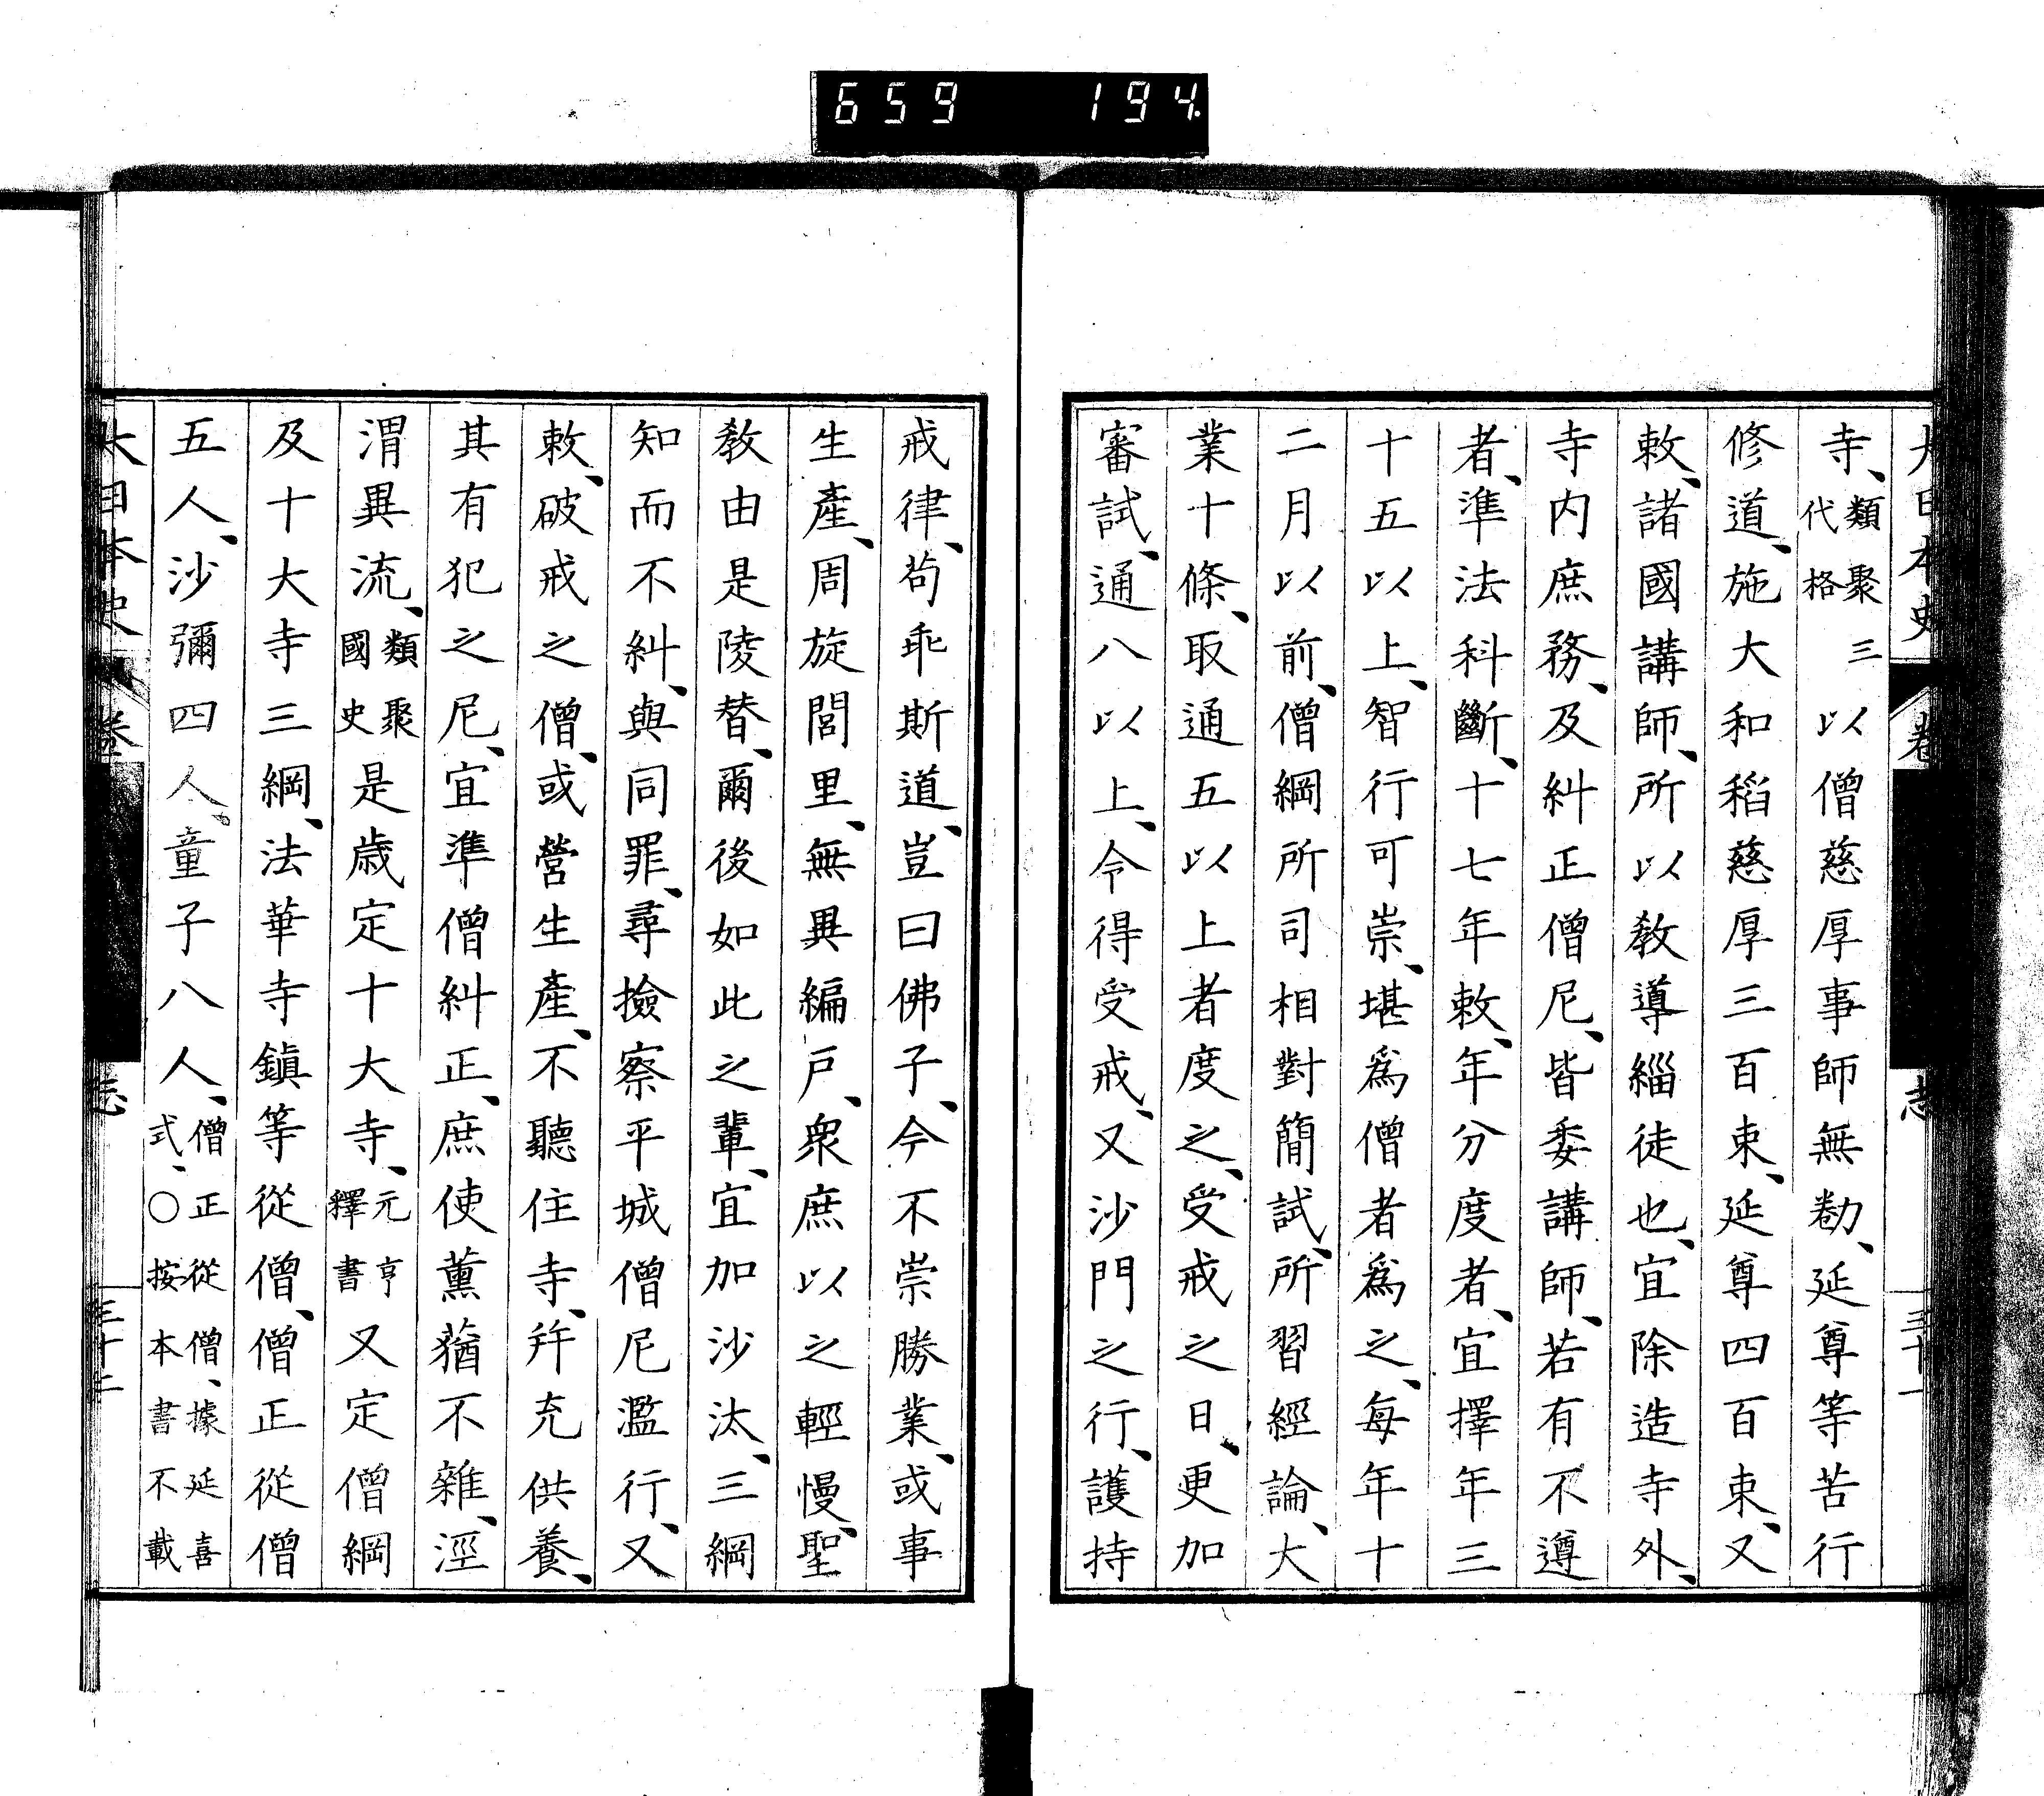 659 194
大日本史 卷 志 三十一
寺、類聚三代格以僧慈厚事師無勌、延尊等苦行
修道、施大和稻慈厚三百束、延尊四百束、又
敕、諸國講師、所以教導緇徒也、宜除造寺外、
寺内庶務、及糾正僧尼、皆委講師、若有不遵
者、準法科斷、十七年敕、年分度者、宜擇年三
十五以上、智行可崇、堪爲僧者爲之、每年十
二月以前、僧綱所司相對簡試、所習經論、大
業十條、取通五以上者度之、受戒之日、更加
審試、通八以上、令得受戒、又沙門之行、護持
戒律、茍乖斯道、豈曰佛子、今不崇勝業、或事
生產、周旋閭里、無異編戸、衆庶以之輕慢、聖
教由是陵替、爾後如此之輩、宜加沙汰、三綱
知而不糾、與同罪、尋撿察平城僧尼濫行、又
敕、破戒之僧、或營生產、不聽住寺、幷充供養、
其有犯之尼、宜準僧糾正、庶使薰蕕不雜、涇
渭異流、類聚國史是歲定十大寺、元亨釋書又定僧綱
及十大寺三綱、法華寺鎮等從僧、僧正從僧
五人、沙彌四人、童子八人、僧正從僧、據延喜式、○按本書不載
大日本史 卷 志 三十二